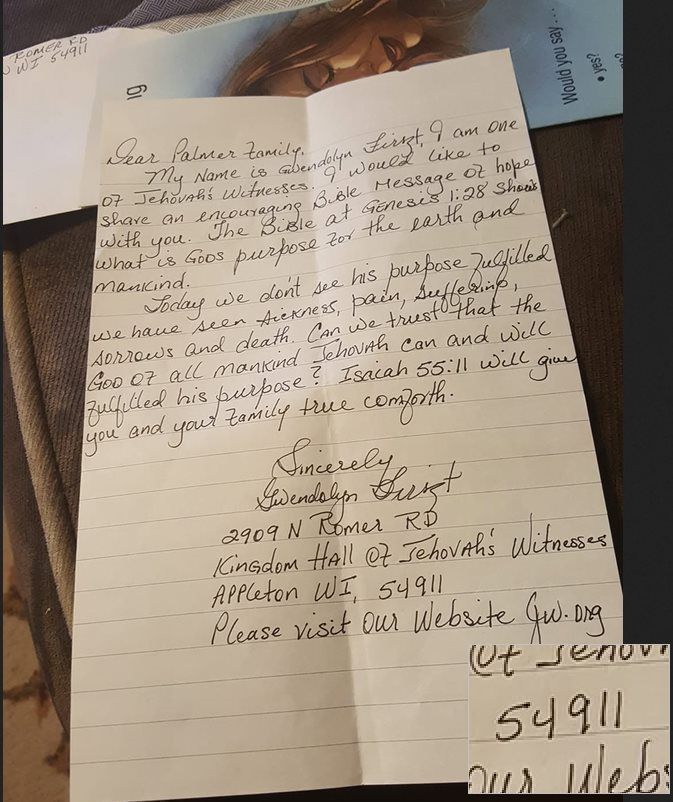 ROMER RD
WI 54911
ng
Would you say...
• yes?
Dear Palmer Family,
My Name is Gwendolyn First, I am one
of Jehovah's Witnesses. I would like to
share an encouraging Bible Message of hope
with you. The Bible at Genesis 1:28 shows
what is Gods purpose for the earth and
mankind.
Today we don't see his purpose fulfilled
we have seen sickness, pain, suffering,
sorrows and death. Can we trust that the
God of all mankind Jehovah can and will
fulfilled his purpose? Isaiah 55:11 will give
you and your family true comforth.
Sincerely
Gwendolyn First
2909 N Romer RD
Kingdom Hall Of Jehovah's Witnesses
Appleton WI, 54911
Please visit Our Website Jw.org
Of Jehov
54911
Our Webs